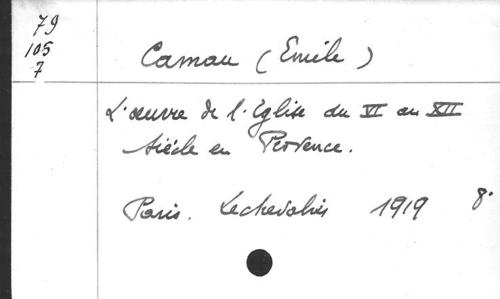 79
105
7
Camau (Emile)
L'œuvre de l'Eglise du VI au XII
siècle en Provence.
Paris. Lechevalier 1919 8°